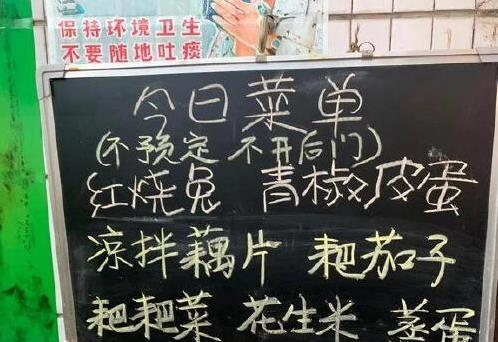 保持环境卫生
不要随地吐痰
今日菜单
(不预定 不开后门)
红烧兔 青椒皮蛋
凉拌藕片 耙茄子
耙耙菜 花生米 蒸蛋